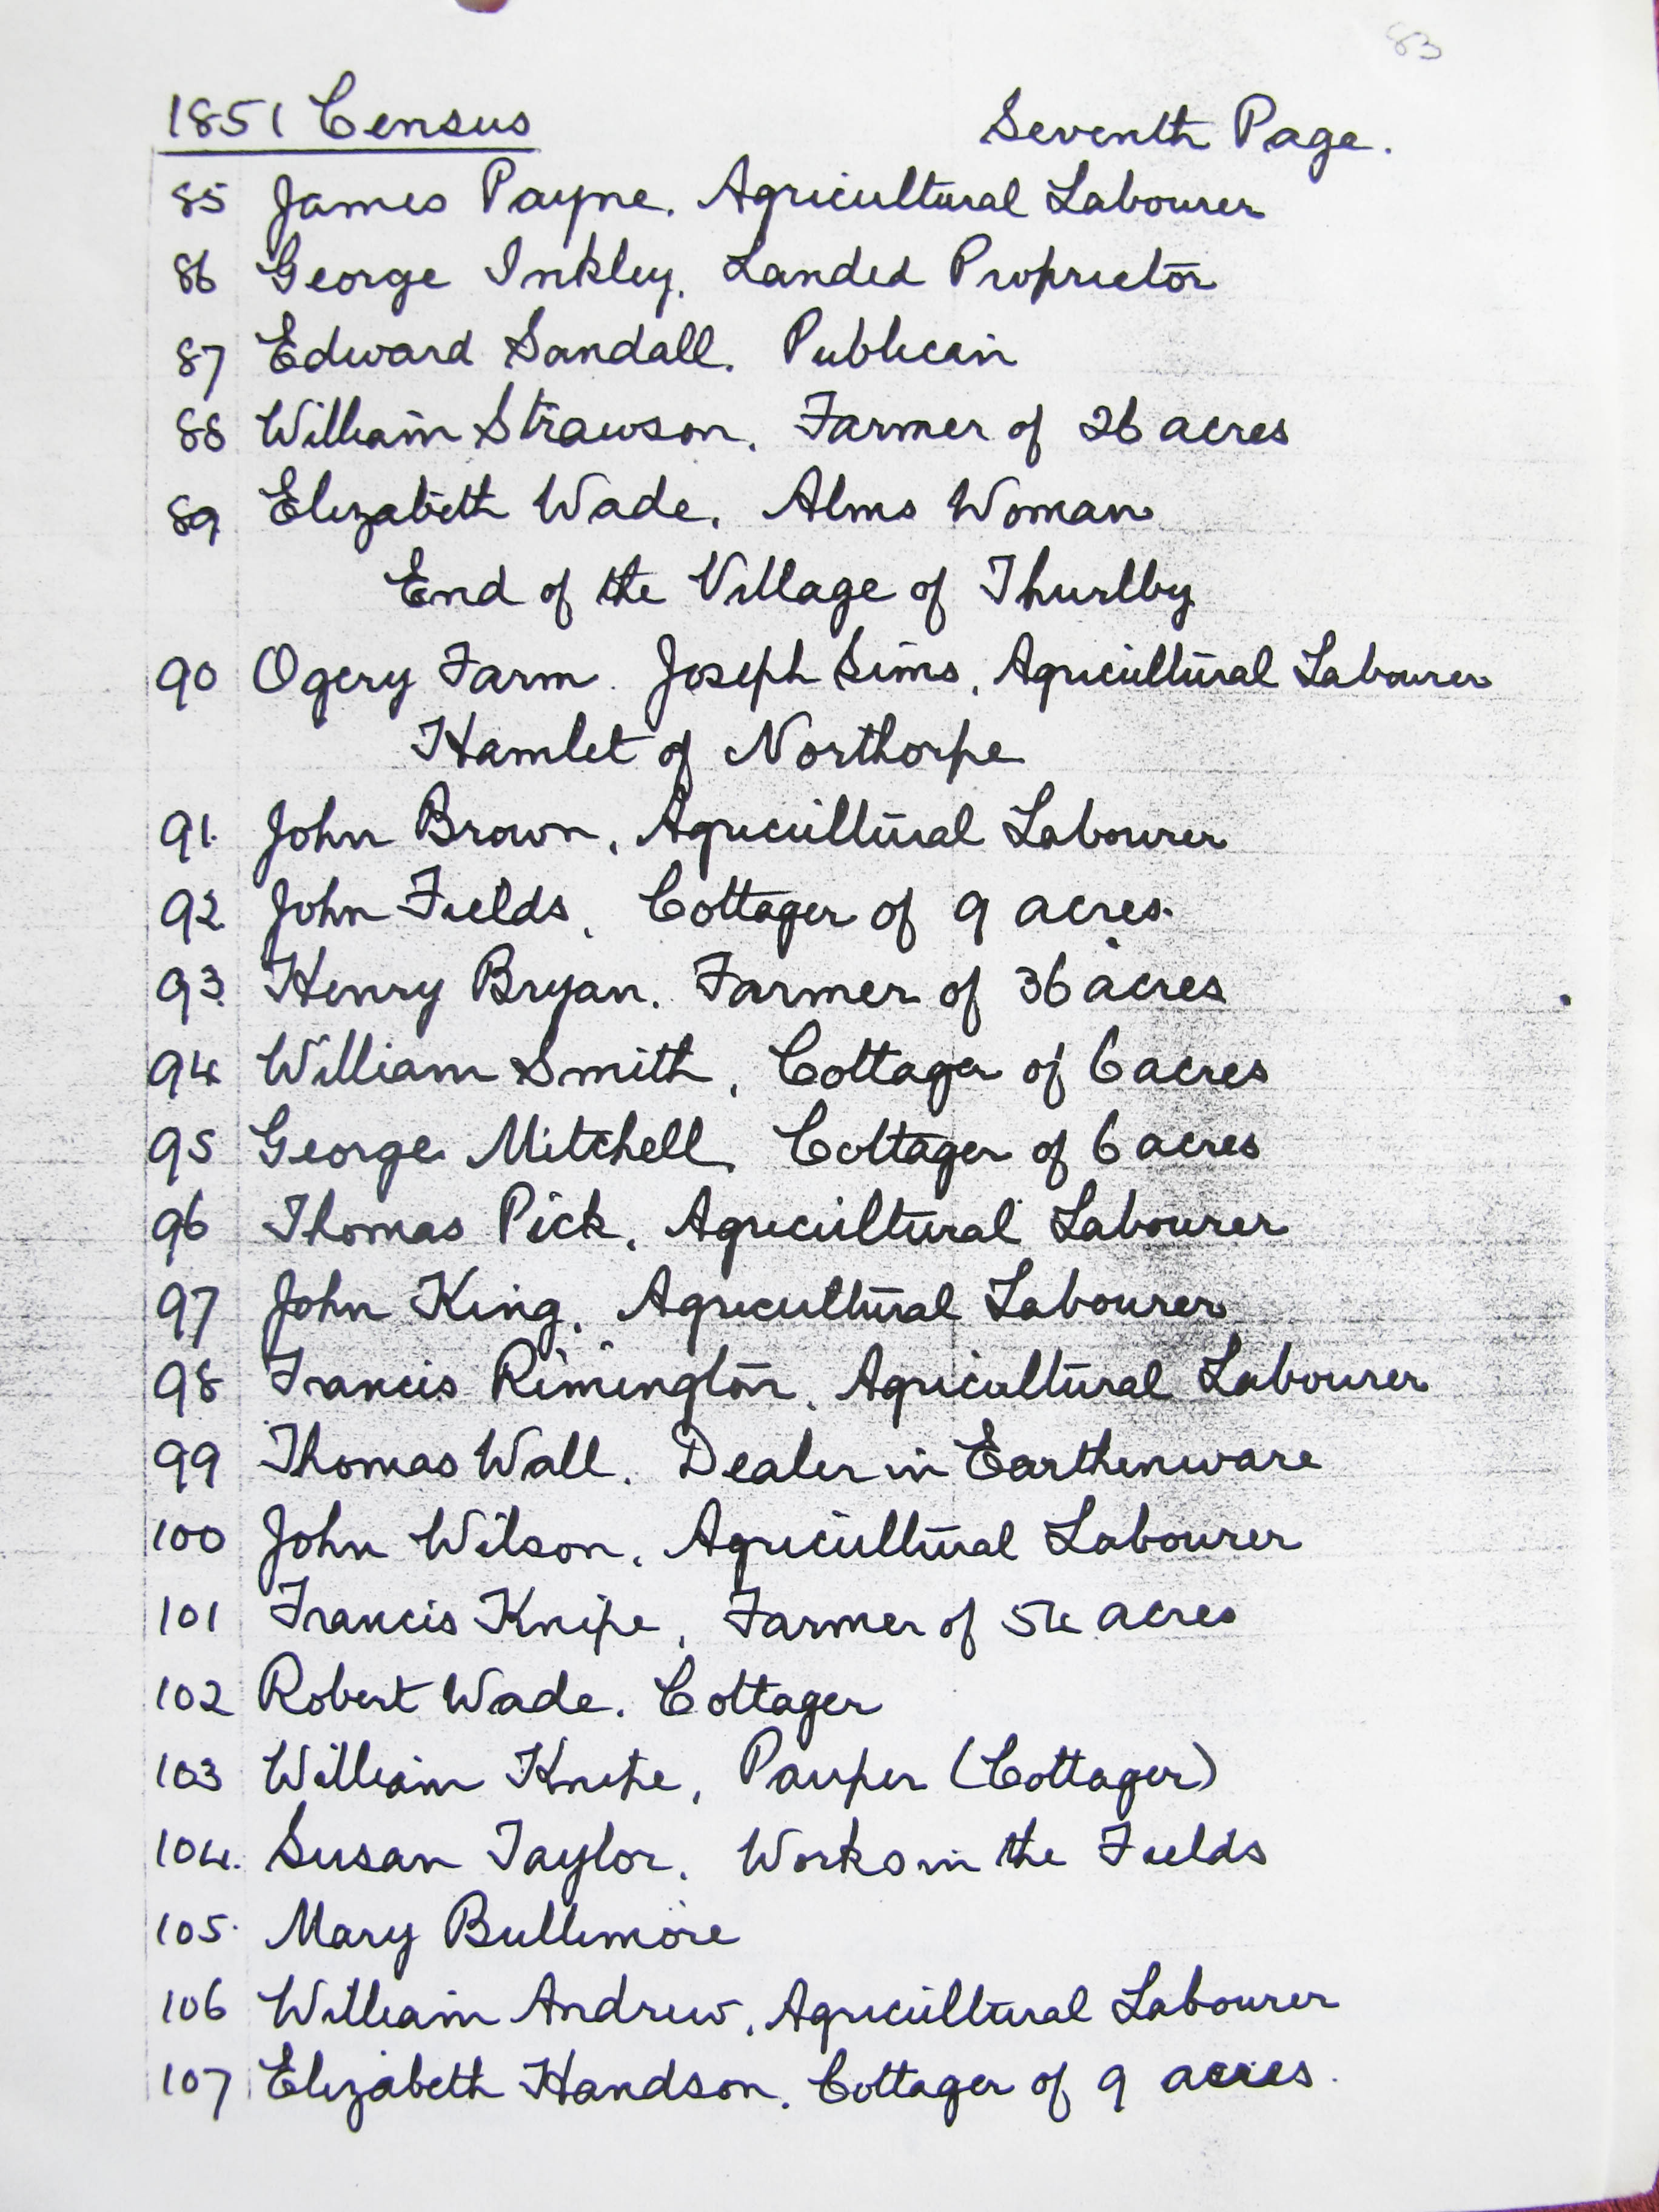 83
1851 Census Seventh Page.
85 James Payne. Agricultural Labourer
86 George Inkley. Landed Proprietor
87 Edward Sandall. Publican
88 William Strawson. Farmer of 26 acres
89 Elizabeth Wade. Alms Woman
End of the Village of Thurlby
90 Ogery Farm. Joseph Sims, Agricultural Labourer
Hamlet of Northorpe
91. John Brown, Agricultural Labourer
92 John Fields, Cottager of 9 acres.
93 Henry Bryan. Farmer of 36 acres
94 William Smith, Cottager of 6 acres
95 George Mitchell, Cottager of 6 acres
96 Thomas Pick, Agricultural Labourer
97 John King, Agricultural Labourer
98 Francis Rimington, Agricultural Labourer
99 Thomas Wall. Dealer in Earthenware
100 John Wilson, Agricultural Labourer
101 Francis Knipe, Farmer of 54 acres
102 Robert Wade. Cottager
103 William Knipe, Pauper (Cottager)
104. Susan Taylor. Works in the Fields
105. Mary Bullimore
106 William Andrew, Agricultural Labourer
107 Elizabeth Handson. Cottager of 9 acres.